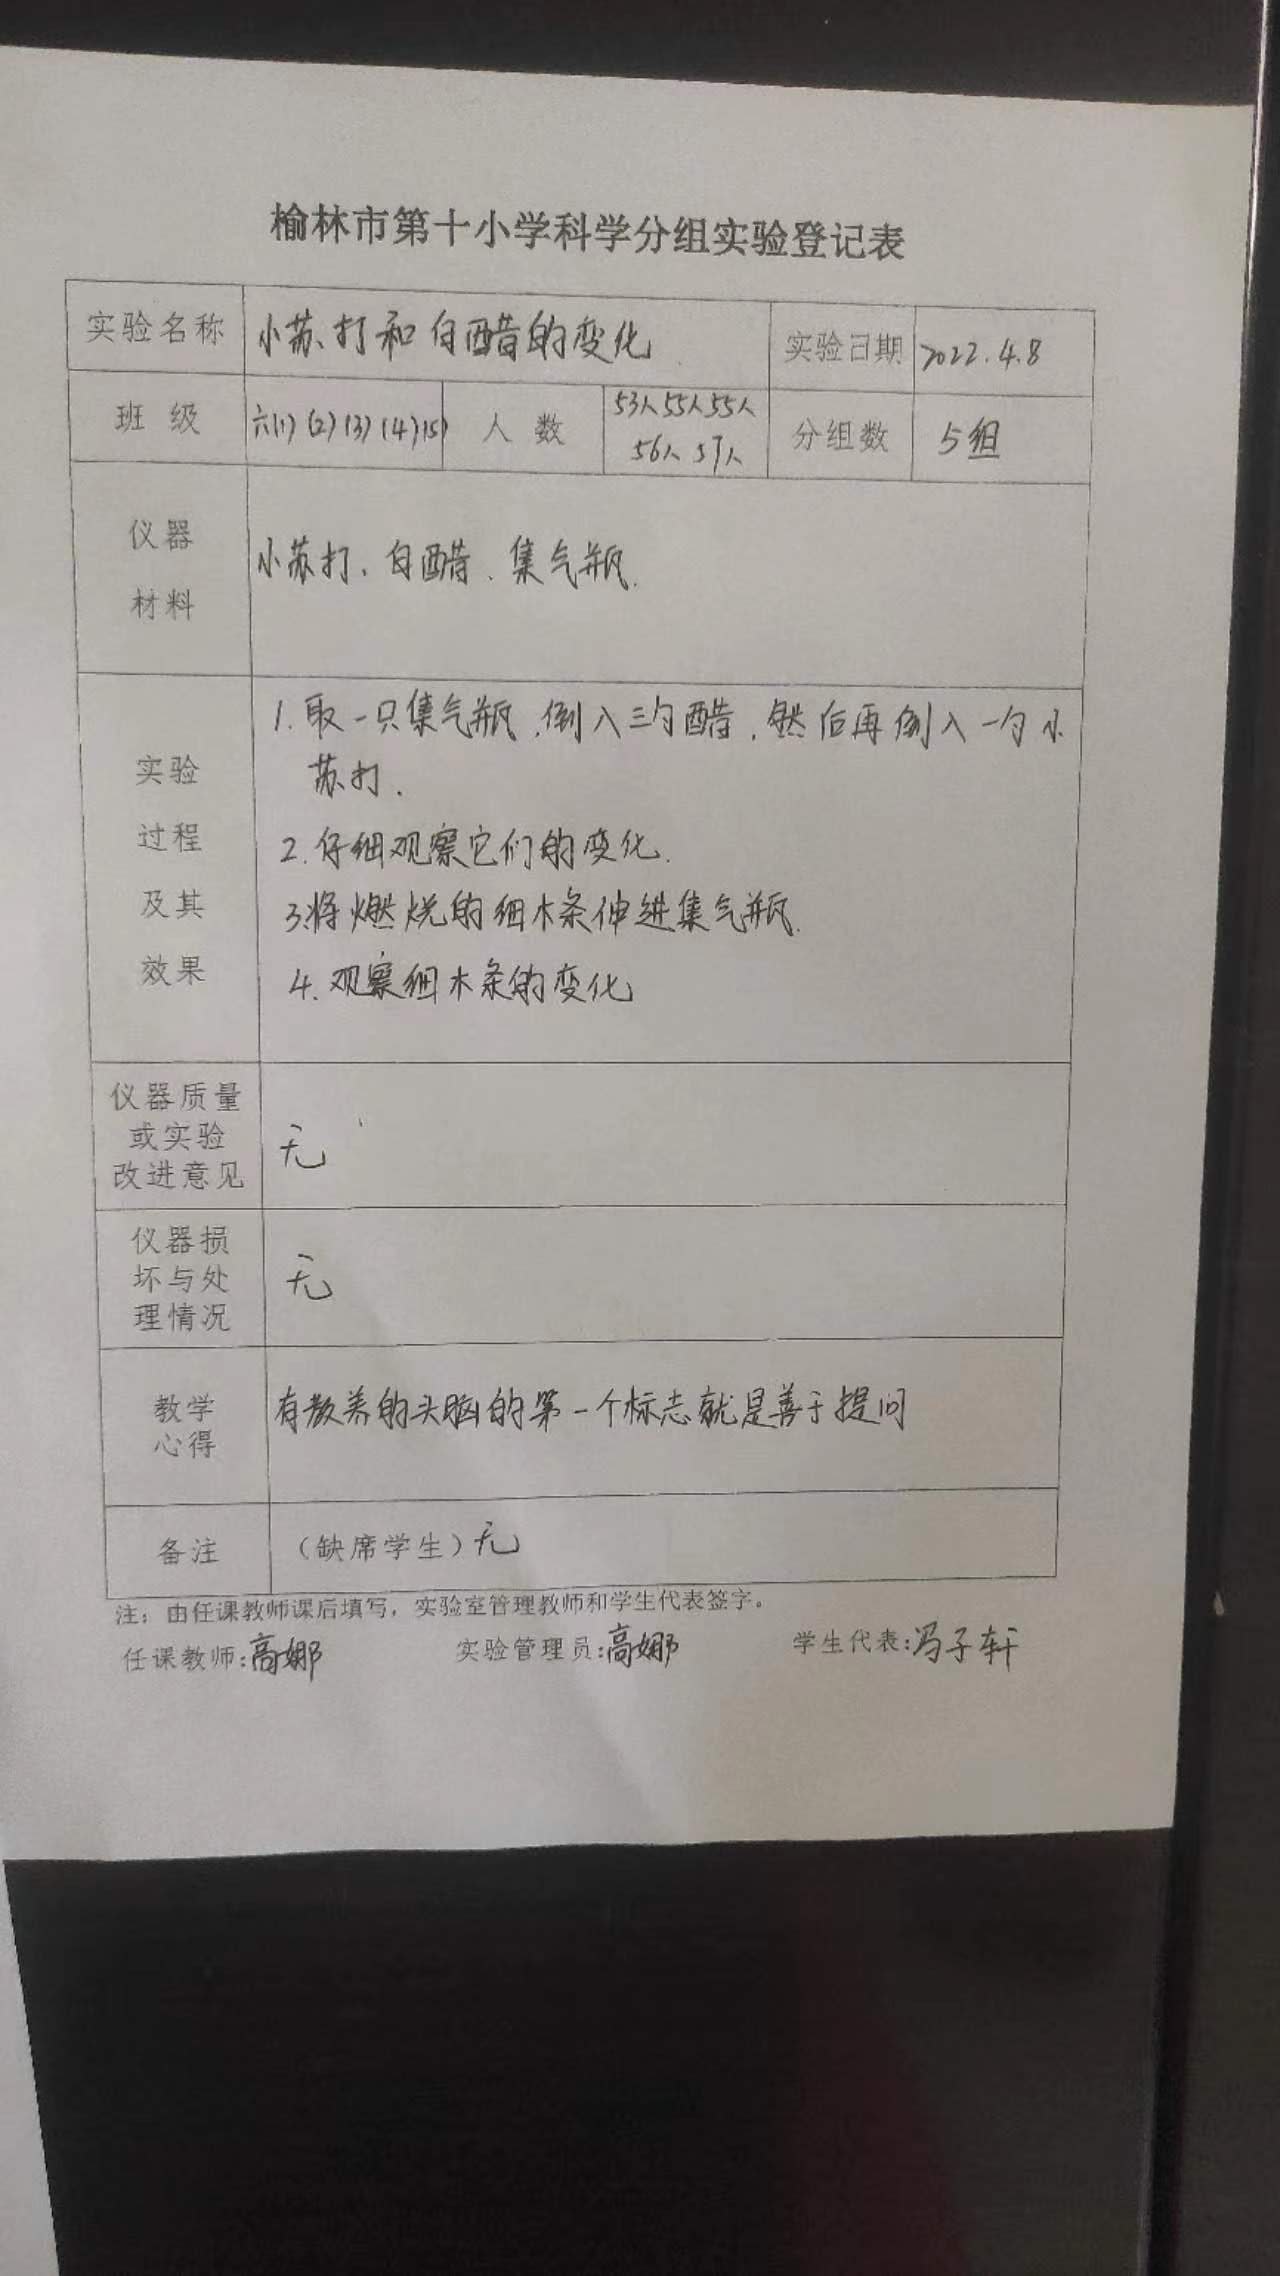 榆林市第十小学科学分组实验登记表
实验名称 小苏打和白醋的变化 实验日期 2022.4.8
班 级 六(1)(2)(3)(4)(5) 人 数 53人55人55人 分组数 5组
56人 57人
仪器
材料
小苏打、白醋、集气瓶.
实验
过程
及其
效果
1.取一只集气瓶,倒入三勺醋,然后再倒入一勺小
苏打.
2.仔细观察它们的变化.
3.将燃烧的细木条伸进集气瓶.
4.观察细木条的变化
仪器质量
或实验
改进意见
无
仪器损
坏与处
理情况
无
教学
心得
有教养的头脑的第一个标志就是善于提问
备注 (缺席学生)无
注:由任课教师课后填写,实验室管理教师和学生代表签字。
任课教师:高娜 实验管理员:高娜 学生代表:冯子轩